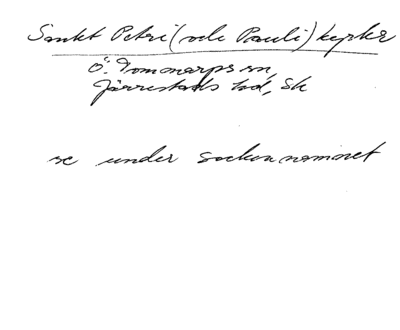 Sankt Petri (och Pauli) kyrka
Ö. Tommarps sn,
Järrestads hd, Sk
se under sockennamnet